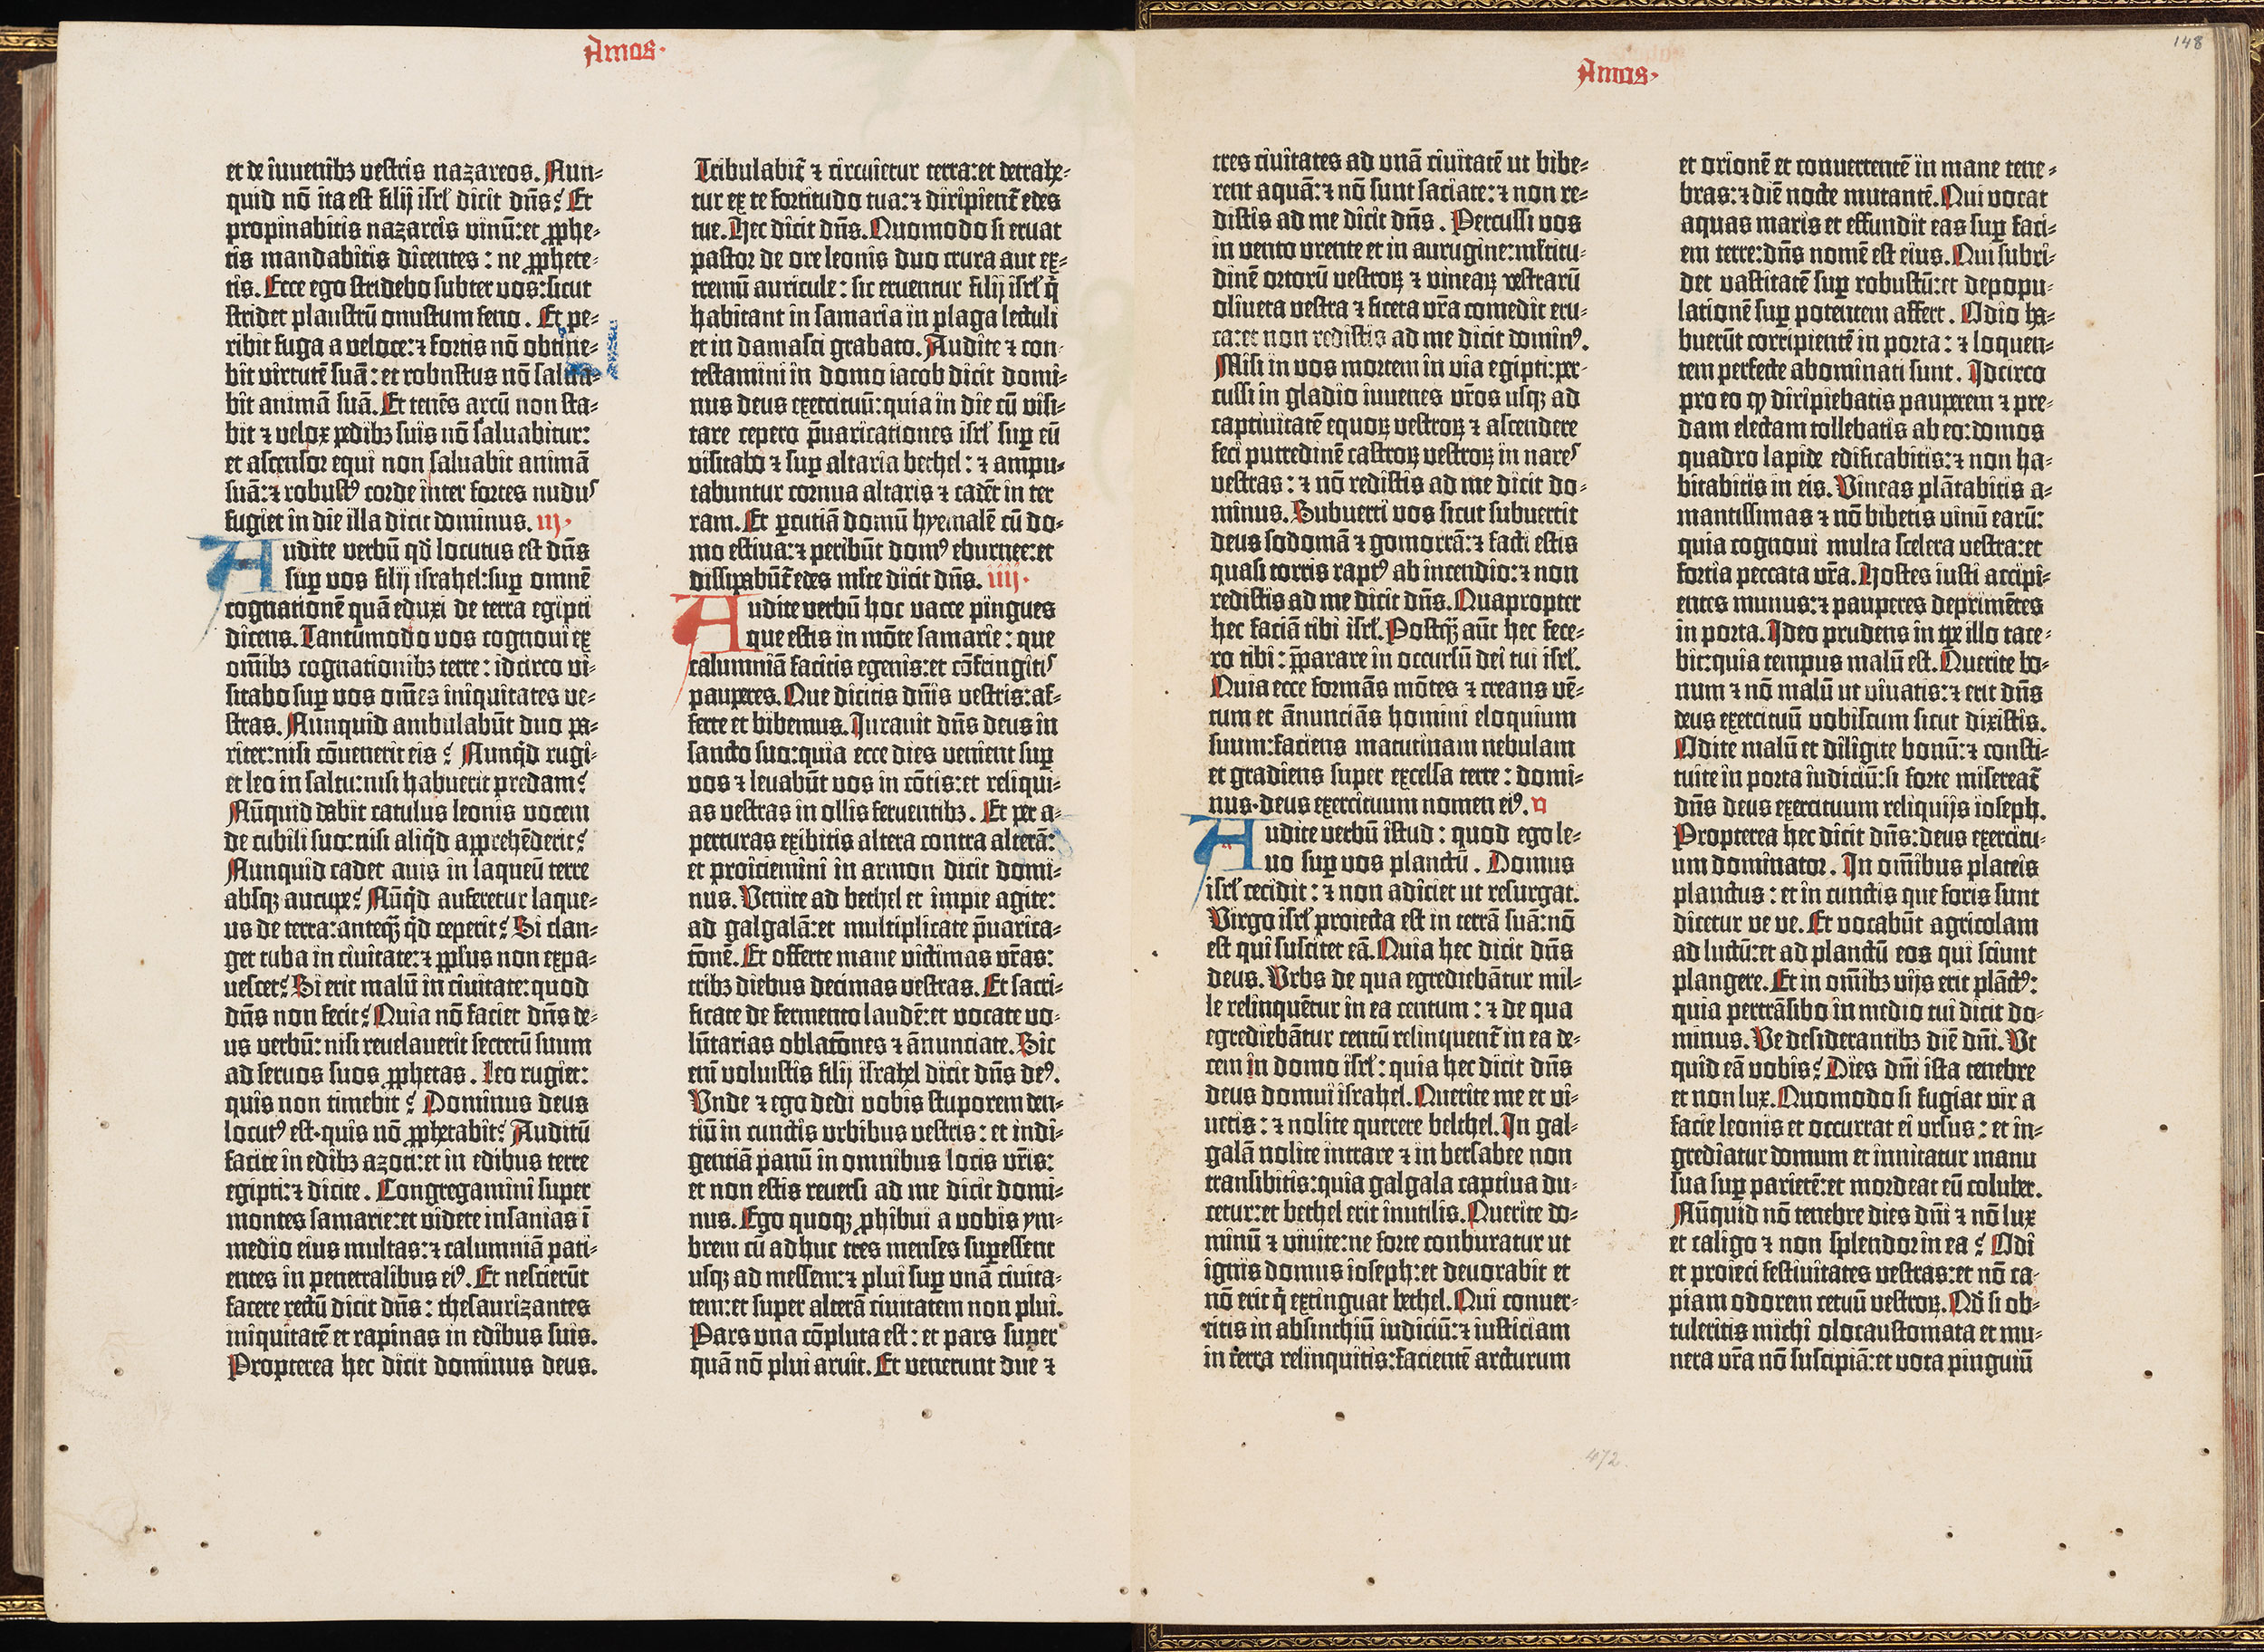 Amos·
et de iuuenibꝫ vestris nazareos. Nun-
quid nō ita est filij isrl̄ dicit dn̄s? Et
propinabitis nazareis vinū: et ꝓphe-
tis mandabitis dicentes: ne ꝓphete-
tis. Ecce ego stridebo subter vos: sicut
stridet plaustrū onustum feno. Et pe-
ribit fuga a veloce: ⁊ fortis nō obtine-
bit virtutē suā: et robustus nō salua-
bit animā suā. Et tenēs arcū non sta-
bit ⁊ velox pedibꝫ suis nō saluabitur:
et ascensor equi non saluabit animā
suā: ⁊ robustꝰ corde inter fortes nudus
fugiet in die illa dicit dominus. iij·
Audite verbū qd̄ locutus est dn̄s
suꝑ vos filij israhel: suꝑ omnē
cognationē quā eduxi de terra egipti
dicens. Tantūmodo vos cognoui ex
om̄ibꝫ cognationibꝫ terre: idcirco vi-
sitabo suꝑ vos om̄es iniquitates ve-
stras. Nunquid ambulabūt duo pa-
riter: nisi cōuenerit eis? Nunqd̄ rugi-
et leo in saltu: nisi habuerit predam?
Nūquid dabit catulus leonis vocem
de cubili suo: nisi aliqd̄ apprehēderit?
Nunquid cadet auis in laqueū terre
absqꝫ aucupe? Nūqd̄ auferetur laque-
us de terra: anteqꝫ̄ qd̄ ceperit? Si clan-
get tuba in ciuitate: ⁊ ꝓplus non expa-
uescet? Si erit malū in ciuitate: quod
dn̄s non fecit? Quia nō faciet dn̄s de-
us verbū: nisi reuelauerit secretū suum
ad seruos suos ꝓphetas. Leo rugiet:
quis non timebit? Dominus deus
locutꝰ est· quis nō ꝓphetabit? Auditū
facite in edibꝫ azoti: et in edibus terre
egipti: ⁊ dicite. Congregamini super
montes samarie: et videte insanias ī
medio eius multas: ⁊ calumniā pati-
entes in penetralibus eiꝰ. Et nescierūt
facere rectū dicit dn̄s: thesaurizantes
iniquitatē et rapinas in edibus suis.
Propterea hec dicit dominus deus.
Tribulabit̄ ⁊ circuietur terra: et detrahe-
tur ex te fortitudo tua: ⁊ diripient̄ edes
tue. Hec dicit dn̄s. Quomodo si eruat
pastor de ore leonis duo crura aut ex-
tremū auricule: sic eruentur filij isrl̄ q̄
habitant in samaria in plaga lectuli
et in damasci grabato. Audite ⁊ con-
testamini in domo iacob dicit domi-
nus deus exercituū: quia in die cū visi-
tare cepero p̄uaricationes isrl̄ suꝑ eū
visitabo ⁊ suꝑ altaria bethel: ⁊ ampu-
tabuntur cornua altaris ⁊ cadēt in ter
ram. Et ꝑcutiā domū hyemalē cū do-
mo estiua: ⁊ peribūt domꝰ eburnee: et
dissipabūt̄ edes ml̄te dicit dn̄s. iiij·
Audite verbū hoc vacce pingues
que estis in mōte samarie: que
calumniā facitis egenis: et cōfringitis
pauperes. Que dicitis dn̄is vestris: af-
ferte et bibemus. Iurauit dn̄s deus in
sancto suo: quia ecce dies venient suꝑ
vos ⁊ leuabūt vos in cōtis: et reliqui-
as vestras in ollis feruentibꝫ. Et per a-
perturas exibitis altera contra alterā:
et proiciemini in armon dicit domi-
nus. Venite ad bethel et impie agite:
ad galgalā: et multiplicate p̄uarica-
cōnē. Et offerte mane victimas vr̄as:
tribꝫ diebus decimas vestras. Et sacri-
ficate de fermento laudē: et vocate vo-
lūtarias oblatōnes ⁊ ānunciate. Sic
eni̅ voluistis filij israhel dicit dn̄s deꝰ.
Vnde ⁊ ego dedi vobis stuporem den-
tiū in cunctis vrbibus vestris: et indi-
gentiā panū in omnibus locis vr̄is:
et non estis reuersi ad me dicit domi-
nus. Ego quoqꝫ ꝓhibui a vobis ym-
brem cū adhuc tres menses suꝑessent
usqꝫ ad messem: ⁊ plui suꝑ vnā ciuita-
tem: et super alterā ciuitatem non plui.
Pars vna cōpluta est: et pars super
quā nō plui aruit. Et venerunt due ⁊
Amos·
148
tres ciuitates ad vnā ciuitatē ut bibe-
rent aquā: ⁊ nō sunt saciate: ⁊ non re-
distis ad me dicit dn̄s. Percussi vos
in vento vrente et in aurugine: ml̄titu-
dinē ortorū vestroꝝ ⁊ vineaꝝ vestrarū
oliueta vestra ⁊ ficeta vr̄a comedit eru-
ca: et non redistis ad me dicit dominꝰ.
Misi in vos mortem in via egipti: per-
cussi in gladio iuuenes vr̄os usqꝫ ad
captiuitatē equoꝝ vestroꝝ ⁊ ascendere
feci putredinē castroꝝ vestroꝝ in nares
vestras: ⁊ nō redistis ad me dicit do-
minus. Subuerti vos sicut subuertit
deus sodomā ⁊ gomorrā: ⁊ facti estis
quasi torris raptꝰ ab incendio: ⁊ non
redistis ad me dicit dn̄s. Quapropter
hec faciā tibi isrl̄. Postqꝫ̄ aūt hec fece-
ro tibi: p̄parare in occursū dei tui isrl̄.
Quia ecce formās mōtes ⁊ creans vē-
tum et ānunciās homini eloquium
suum: faciens matutinam nebulam
et gradiens super excelsa terre: domi-
nus· deus exercituum nomen eiꝰ. v
Audite verbū istud: quod ego le-
uo suꝑ vos planctū. Domus
isrl̄ cecidit: ⁊ non adiciet ut resurgat.
Virgo isrl̄ proiecta est in terrā suā: nō
est qui suscitet eā. Quia hec dicit dn̄s
deus. Vrbs de qua egrediebātur mil-
le relinquētur in ea centum: ⁊ de qua
egrediebātur centū relinquent̄ in ea de-
cem in domo isrl̄: quia hec dicit dn̄s
deus domui israhel. Querite me et vi-
uetis: ⁊ nolite querere belthel. In gal-
galā nolite intrare ⁊ in bersabee non
transibitis: quia galgala captiua du-
cetur: et bethel erit inutilis. Querite do-
minū ⁊ viuite: ne forte conburatur ut
ignis domus ioseph: et deuorabit et
nō erit q̄ extinguat bethel. Qui conuer-
titis in absinthiū iudiciū: ⁊ iusticiam
in terra relinquitis: facientē arcturum
et orionē et conuertentē in mane tene-
bras: ⁊ diē nocte mutantē. Qui vocat
aquas maris et effundit eas suꝑ faci-
em terre: dn̄s nomē est eius. Qui subri-
det vastitatē suꝑ robustū: et depopu-
lationē suꝑ potentem affert. Odio ha-
buerūt corripientē in porta: ⁊ loquen-
tem perfecte abominati sunt. Idcirco
pro eo ꝙ diripiebatis pauperem ⁊ pre-
dam electam tollebatis ab eo: domos
quadro lapide edificabitis: ⁊ non ha-
bitabitis in eis. Vineas plātabitis a-
mantissimas ⁊ nō bibetis vinū earū:
quia cognoui multa scelera vestra: et
fortia peccata vr̄a. Hostes iusti accipi-
entes munus: ⁊ pauperes deprimētes
in porta. Ideo prudens in tꝑe illo tace-
bit: quia tempus malū est. Querite bo-
num ⁊ nō malū ut viuatis: ⁊ erit dn̄s
deus exercituū vobiscum sicut dixistis.
Odite malū et diligite bonū: ⁊ consti-
tuite in porta iudiciū: si forte misereat̄
dn̄s deus exercituum reliquijs ioseph.
Propterea hec dicit dn̄s: deus exercitu-
um dominator. In om̄ibus plateis
planctus: et in cunctis que foris sunt
dicetur ve ve. Et vocabūt agricolam
ad luctū: et ad planctū eos qui sciunt
plangere. Et in om̄ibꝫ vijs erit plāctꝰ:
quia pertrāsibo in medio tui dicit do-
minus. Ve desiderantibꝫ diē dn̄i. Vt
quid eā vobis? Dies dn̄i ista tenebre
et non lux. Quomodo si fugiat vir a
facie leonis et occurrat ei vrsus: et in-
grediatur domum et innitatur manu
sua suꝑ parietē: et mordeat eū coluber.
Nūquid nō tenebre dies dn̄i ⁊ nō lux
et caligo ⁊ non splendor in ea? Odi
et proieci festiuitates vestras: et nō ca-
piam odorem cetuū vestroꝝ. Qd̄ si ob-
tuleritis michi olocaustomata et mu-
nera vr̄a nō suscipiā: et vota pinguiū
472